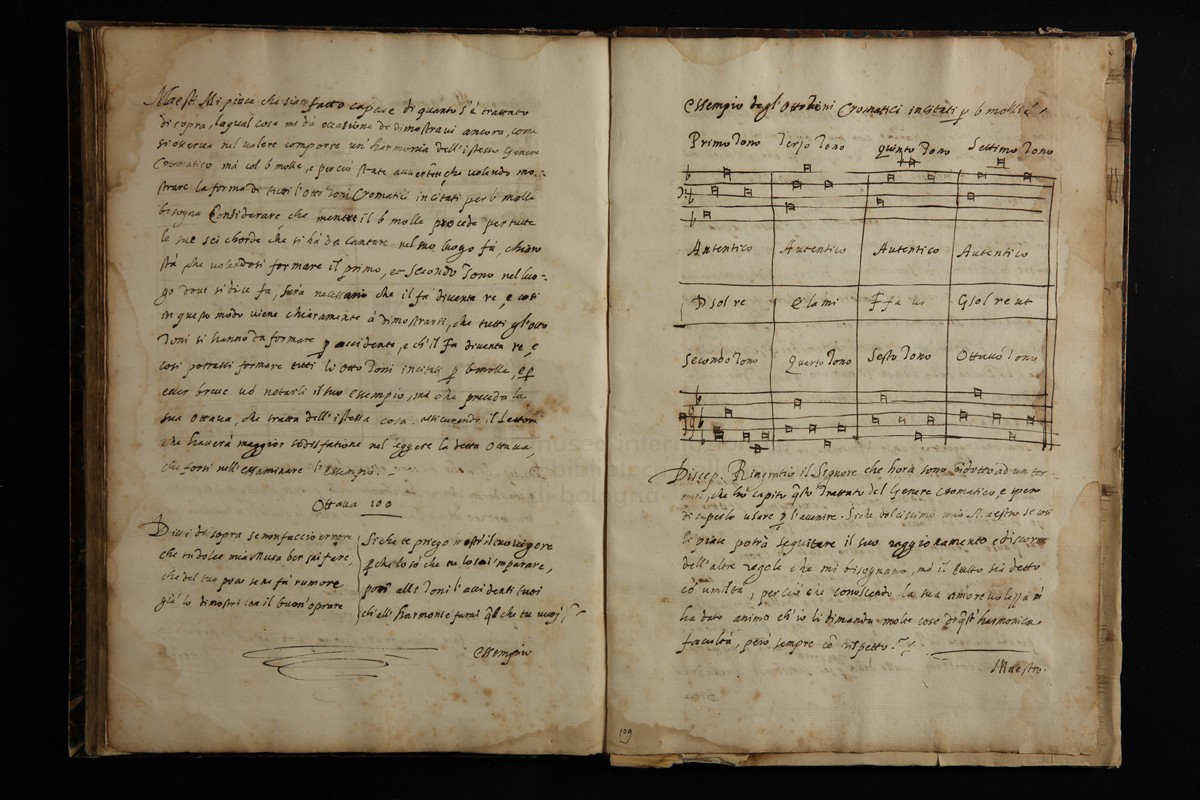 Maest: Mi piace che siate fatto capace di quanto s'è trattato
di sopra, laqual cosa mi dà occasione de dimostrarvi ancora, come
si osserva nel volere comporre un'harmonia dell'istesso Genere
Cromatico mà col b molle, e perciò state avvertito che volendo mo-
strare la forma di tutti l'otto Toni Cromatici incitati per b molle
bisogna considerare che mentre il b molle procede per tutte
le sue sei chorde che si hà da cantare nel suo luogo fà, chiaro
stà che volendosi formare il primo, et secondo Tono nel luo-
go dove si dice fa, sarà necessario che il fà diventa re, e cosi
in questo modo viene chiaramente à dimostrarsi, che tutti gl'otto
Toni si hanno da formare p accidente, e ch'il Fa diventa re, e
cosi potrassi formare tutti li otto Toni incitati p b molle, e p
esser breve vò notarli il suo esempio, mà che preceda la
sua ottava, che tratta dell'istessa cosa, assicurando il Lettore
che haverà maggior sodisfatione nel leggere la detta ottava,
che forsi nell'essaminare l'essempio.
Ottava 100
Dissi di sopra se non faccio errore
che tu dolce mia Musa ben sai fare,
che del tuo poco se ne fà rumore
già lo dimostri con il buon oprare
Siche te priego mostr'il tuo vigore
pche lo sò che ne lo sai imparare,
poni alli Toni l'accidenti tuoi
ch'all'harmonie farai ql che tu vuoi
Essempio
Essempio degl'Otto Toni Cromatici incitati p b molle
Primo Tono Terzo Tono Quinto Tono Settimo Tono
Autentico Autentico Autentico Autentico
D sol re E la mi F fa ut G sol re ut
Secondo Tono Quarto Tono Sesto Tono Ottavo Tono
Discep: Ringratio il Signore che hora sono ridotto ad un ter-
mine, che hò capito qsto Trattato del Genere Cromatico, e spero
di saperlo usare p l'avenire. Siche dolcissimo mio Maestro se cosi
li piace potrà seguitare il suo raggionamento e discor
dell'altre regole che mi bisognano, mà il tutto sia detto
cò umiltà, perciò che conoscendo la sua amorevolezza m'
ha dato animo ch'io li dimandi molte cose di qst'harmonica
facultà, però sempre cò rispetto.
Maestro.
109